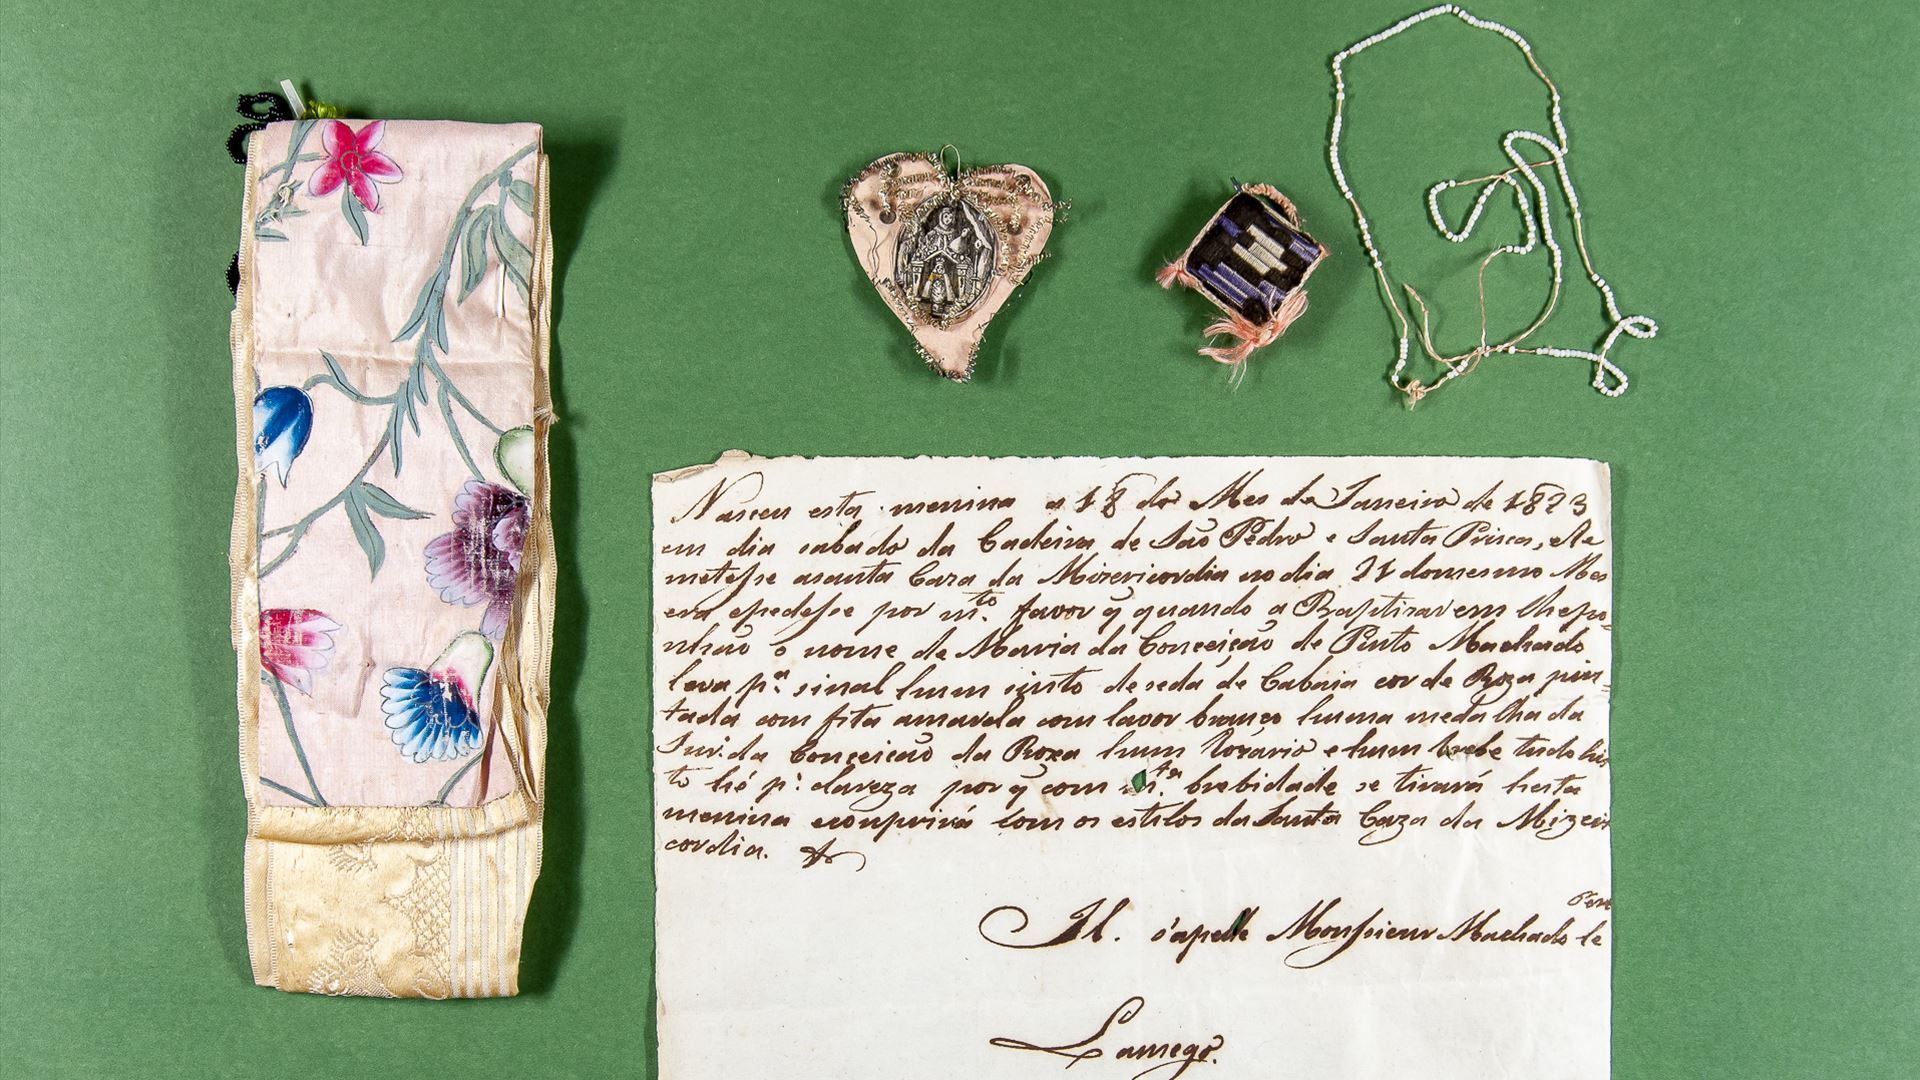 Nasceu esta menina a 18 do Mes de Janeiro de 1823
em dia sabado da Cadeira de São Pedro e Santa Prisca, e Re
metesse asanta Caza da Mizericordia no dia 21 domesmo Mes
era epedesse por m.to favor q̃ quando a Baptizarem lhepo-
nhão o nome de Maria da Conceição de Pinto Machado
leva p.a sinal hum sinto deseda de Cabaia cor de Roza pin-
tada com fita amarela com lavor branco huma medalha da
Snr.da Conceicão da Roxa hum Rozario e hum brebe tudo his
to hé p.a clareza por q̃ com m.ta brebidade se tirará hesta
menina ecomprirá com os estilos da Santa Caza da Mizeri
cordia.
Pere
Il. s'apelle Monsieur Machado le
Lamego.